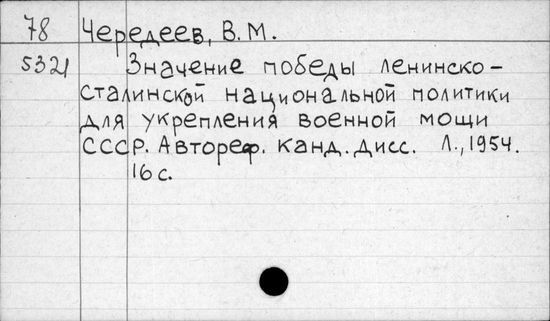 78 Чередеев, В.М.
5321 Значение победы ленинско-
сталинской национальной политики
для укрепления военной мощи
СССР. Автореф. канд. дисс. Л., 1954.
16 с.